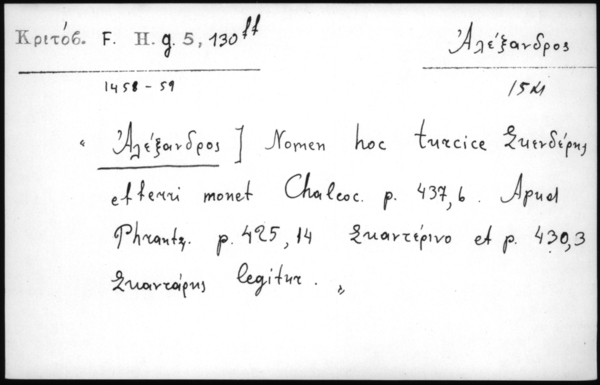 Κριτόβ. F. H. g. 5, 130 ff
Ἀλέξανδρος
1458-59
« Ἀλέξανδρος ] Nomen hoc turcice Σκενδέρης
efferri monet Chalcoc. p. 437,6. Apud
Phrantz. p. 425,14 Σκαντέρινο et p. 430,3
Σκαντάρης legitur. »